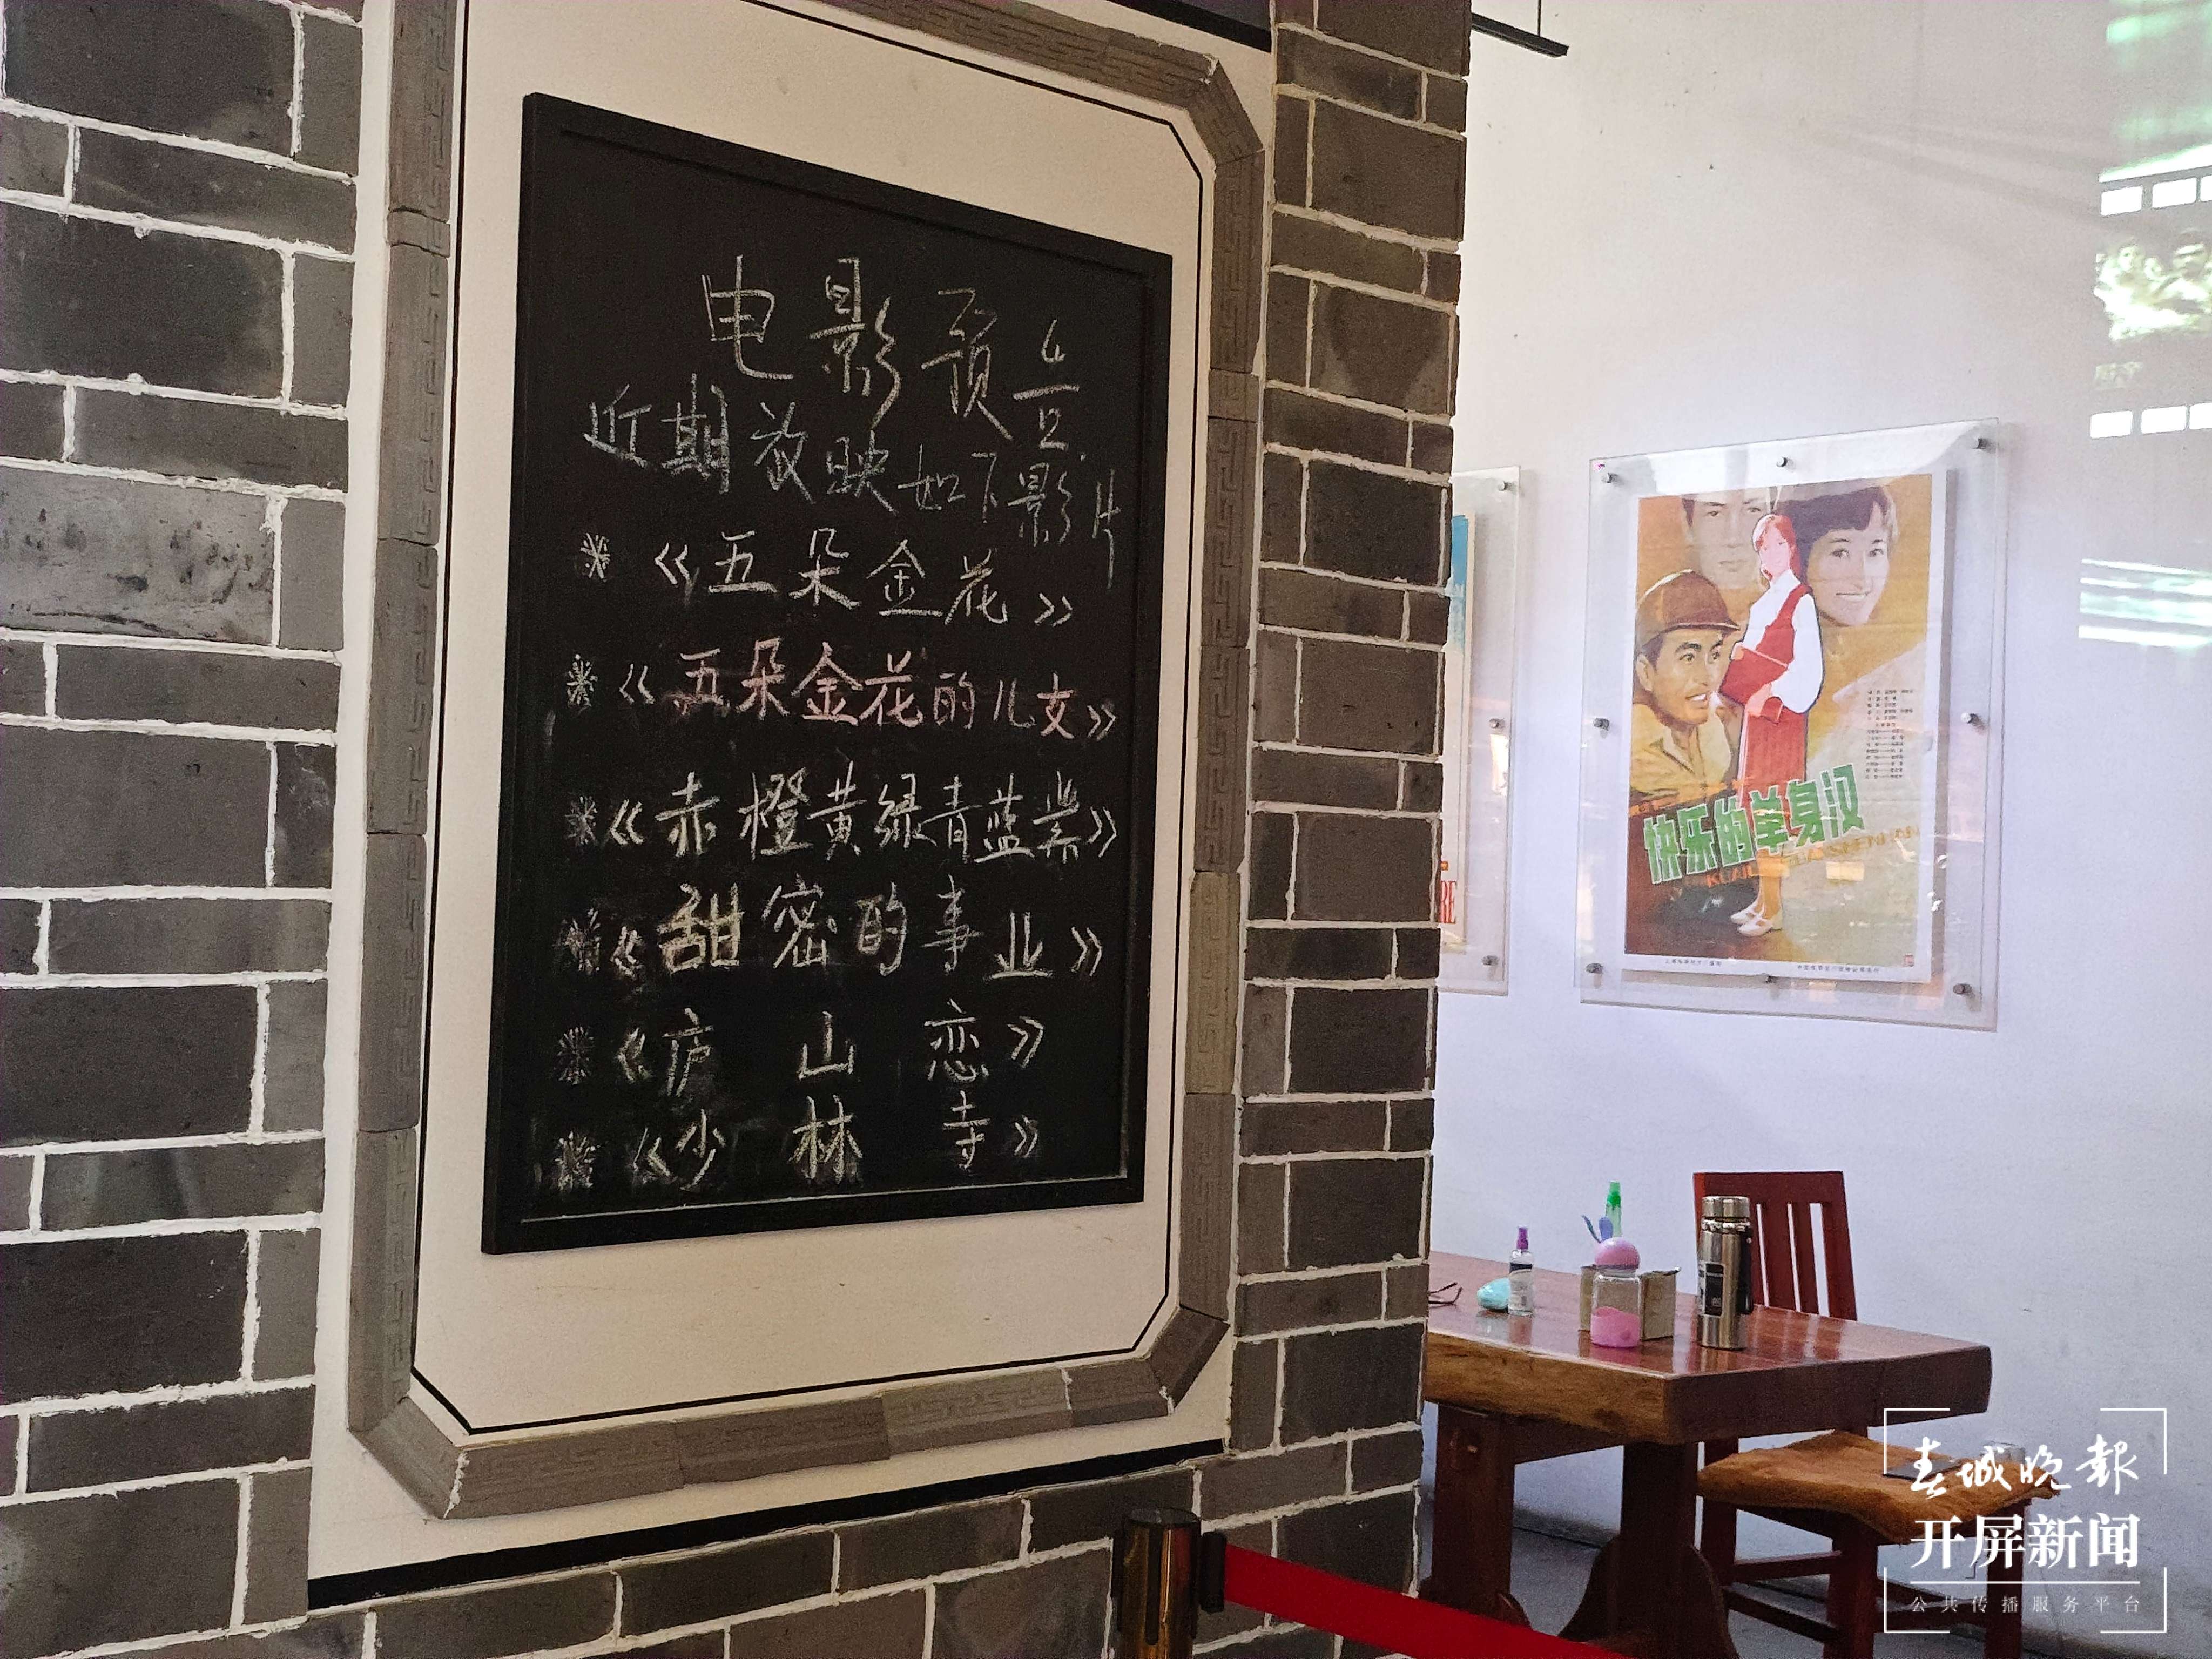 电影预告
近期放映如下影片
《五朵金花》
《五朵金花的儿女》
《赤橙黄绿青蓝紫》
《甜密的事业》
《庐山恋》
《少林寺》
快乐的单身汉
RE
春城晚报
开屏新闻
公共传播服务平台